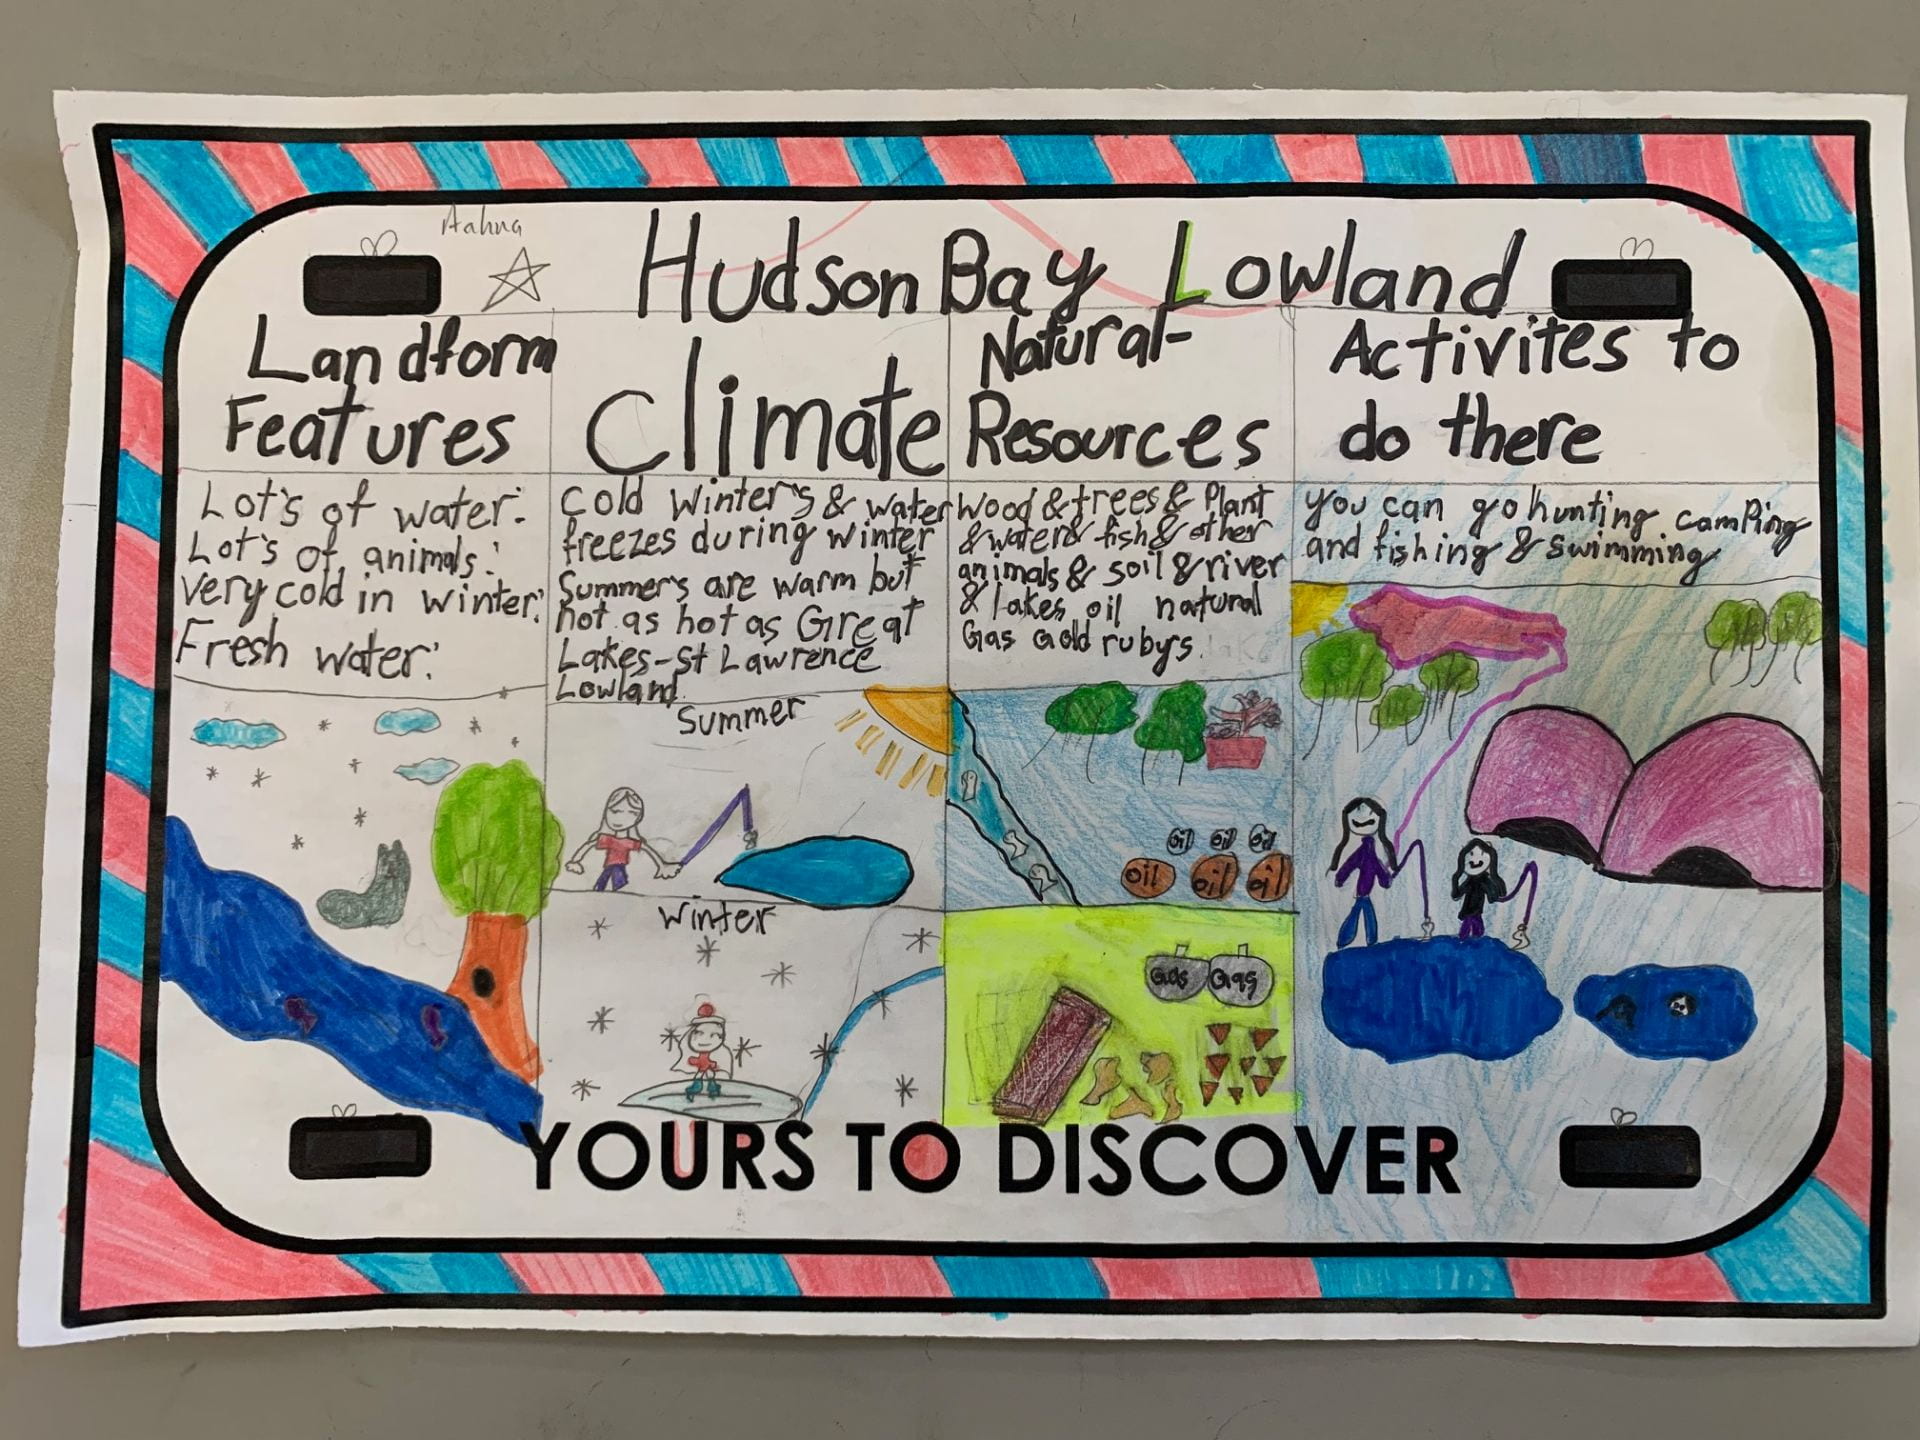 Aahna
Hudson Bay Lowland
Landform
Features
Lot's of water.
Lot's of animals.
very cold in winter.
Fresh water.
Climate
Cold Winter's & water
freezes during winter
Summer's are warm but
not as hot as Great
Lakes-St Lawrence
Lowland.
Summer
Winter
Natural-
Resources
Wood & trees & Plant
& water & fish & other
animals & soil & river
& lakes oil natural
Gas Gold rubys.
oil oil oil
oil oil oil
Gas Gas
Activites to
do there
you can go hunting camping
and fishing & swimming
YOURS TO DISCOVER